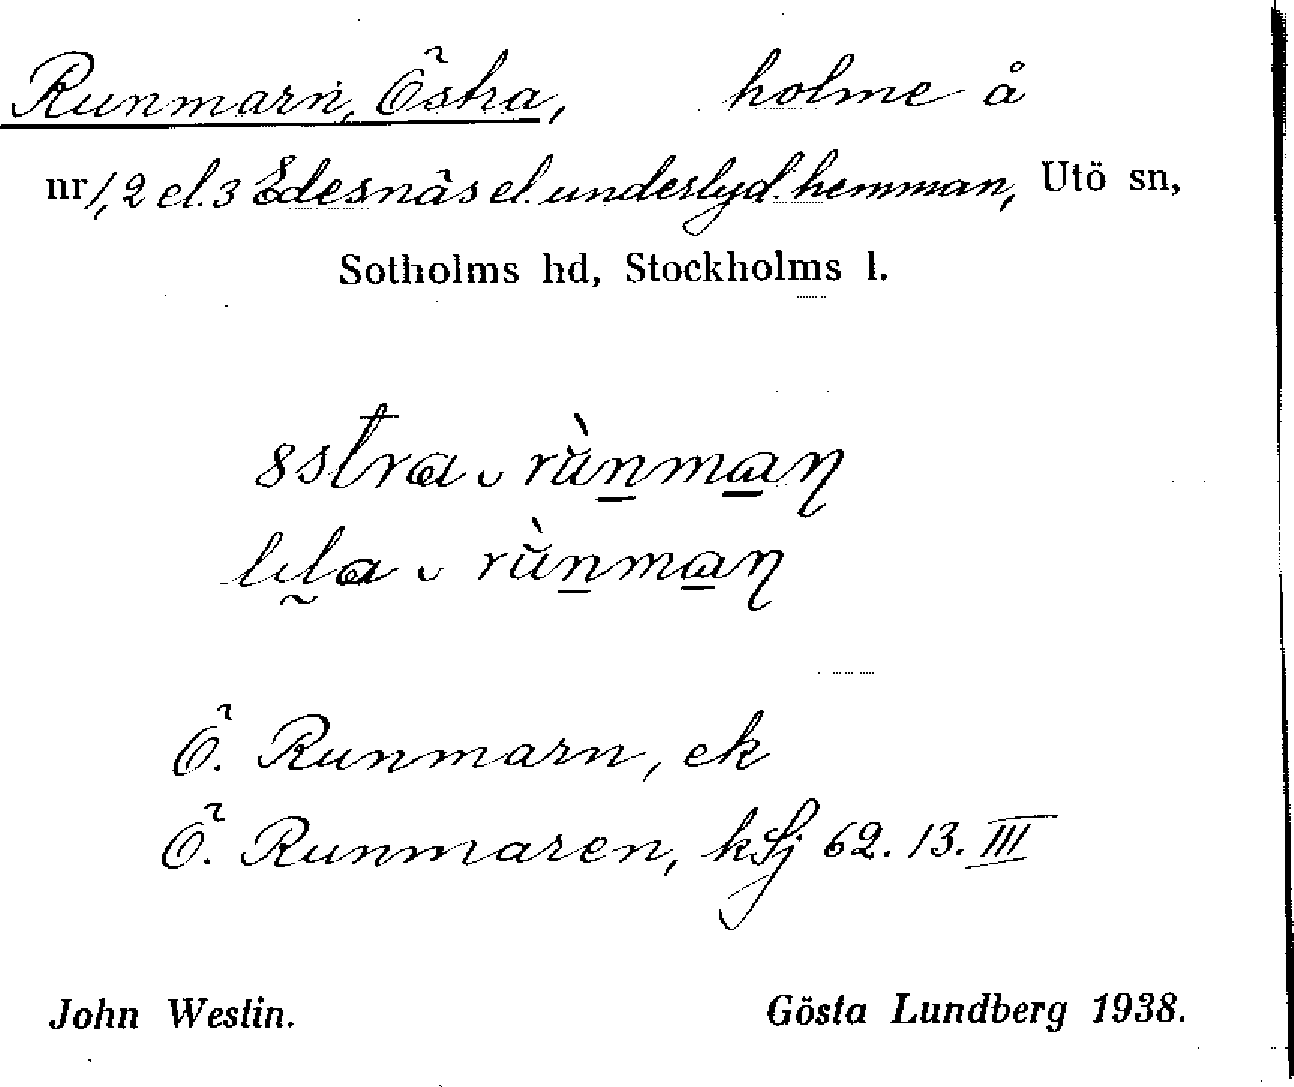 Runmarn, Östra, holme å
nr 1, 2 el. 3 Edesnäs el. underlyd. hemman, Utö sn,
Sotholms hd, Stockholms l.
östra ᴗ rùnman
lila ᴗ rùnman
Ö. Runmarn, ek
Ö. Runmaren, kSj 62. 13. III
John Westin. Gösta Lundberg 1938.